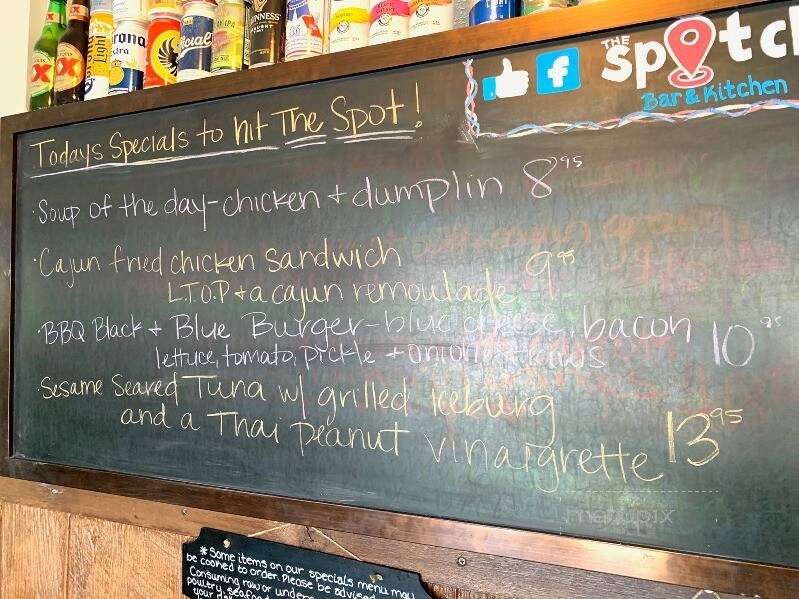 THE
Spotch
Bar & Kitchen
Todays Specials to hit The Spot!
·Soup of the day-chicken + dumplin 8 95
·Cajun fried chicken sandwich
L.T.O.P + a cajun remoulade 9 95
·BBQ Black + Blue Burger-blue cheese, bacon 10 95
lettuce, tomato, pickle + onion
·Sesame Seared Tuna w/ grilled iceburg
and a Thai peanut vinaigrette 13 95
* Some items on our specials menu may
be cooked to order. Please be advised
Consuming raw or under
poultry, seafood
your
GUINNESS